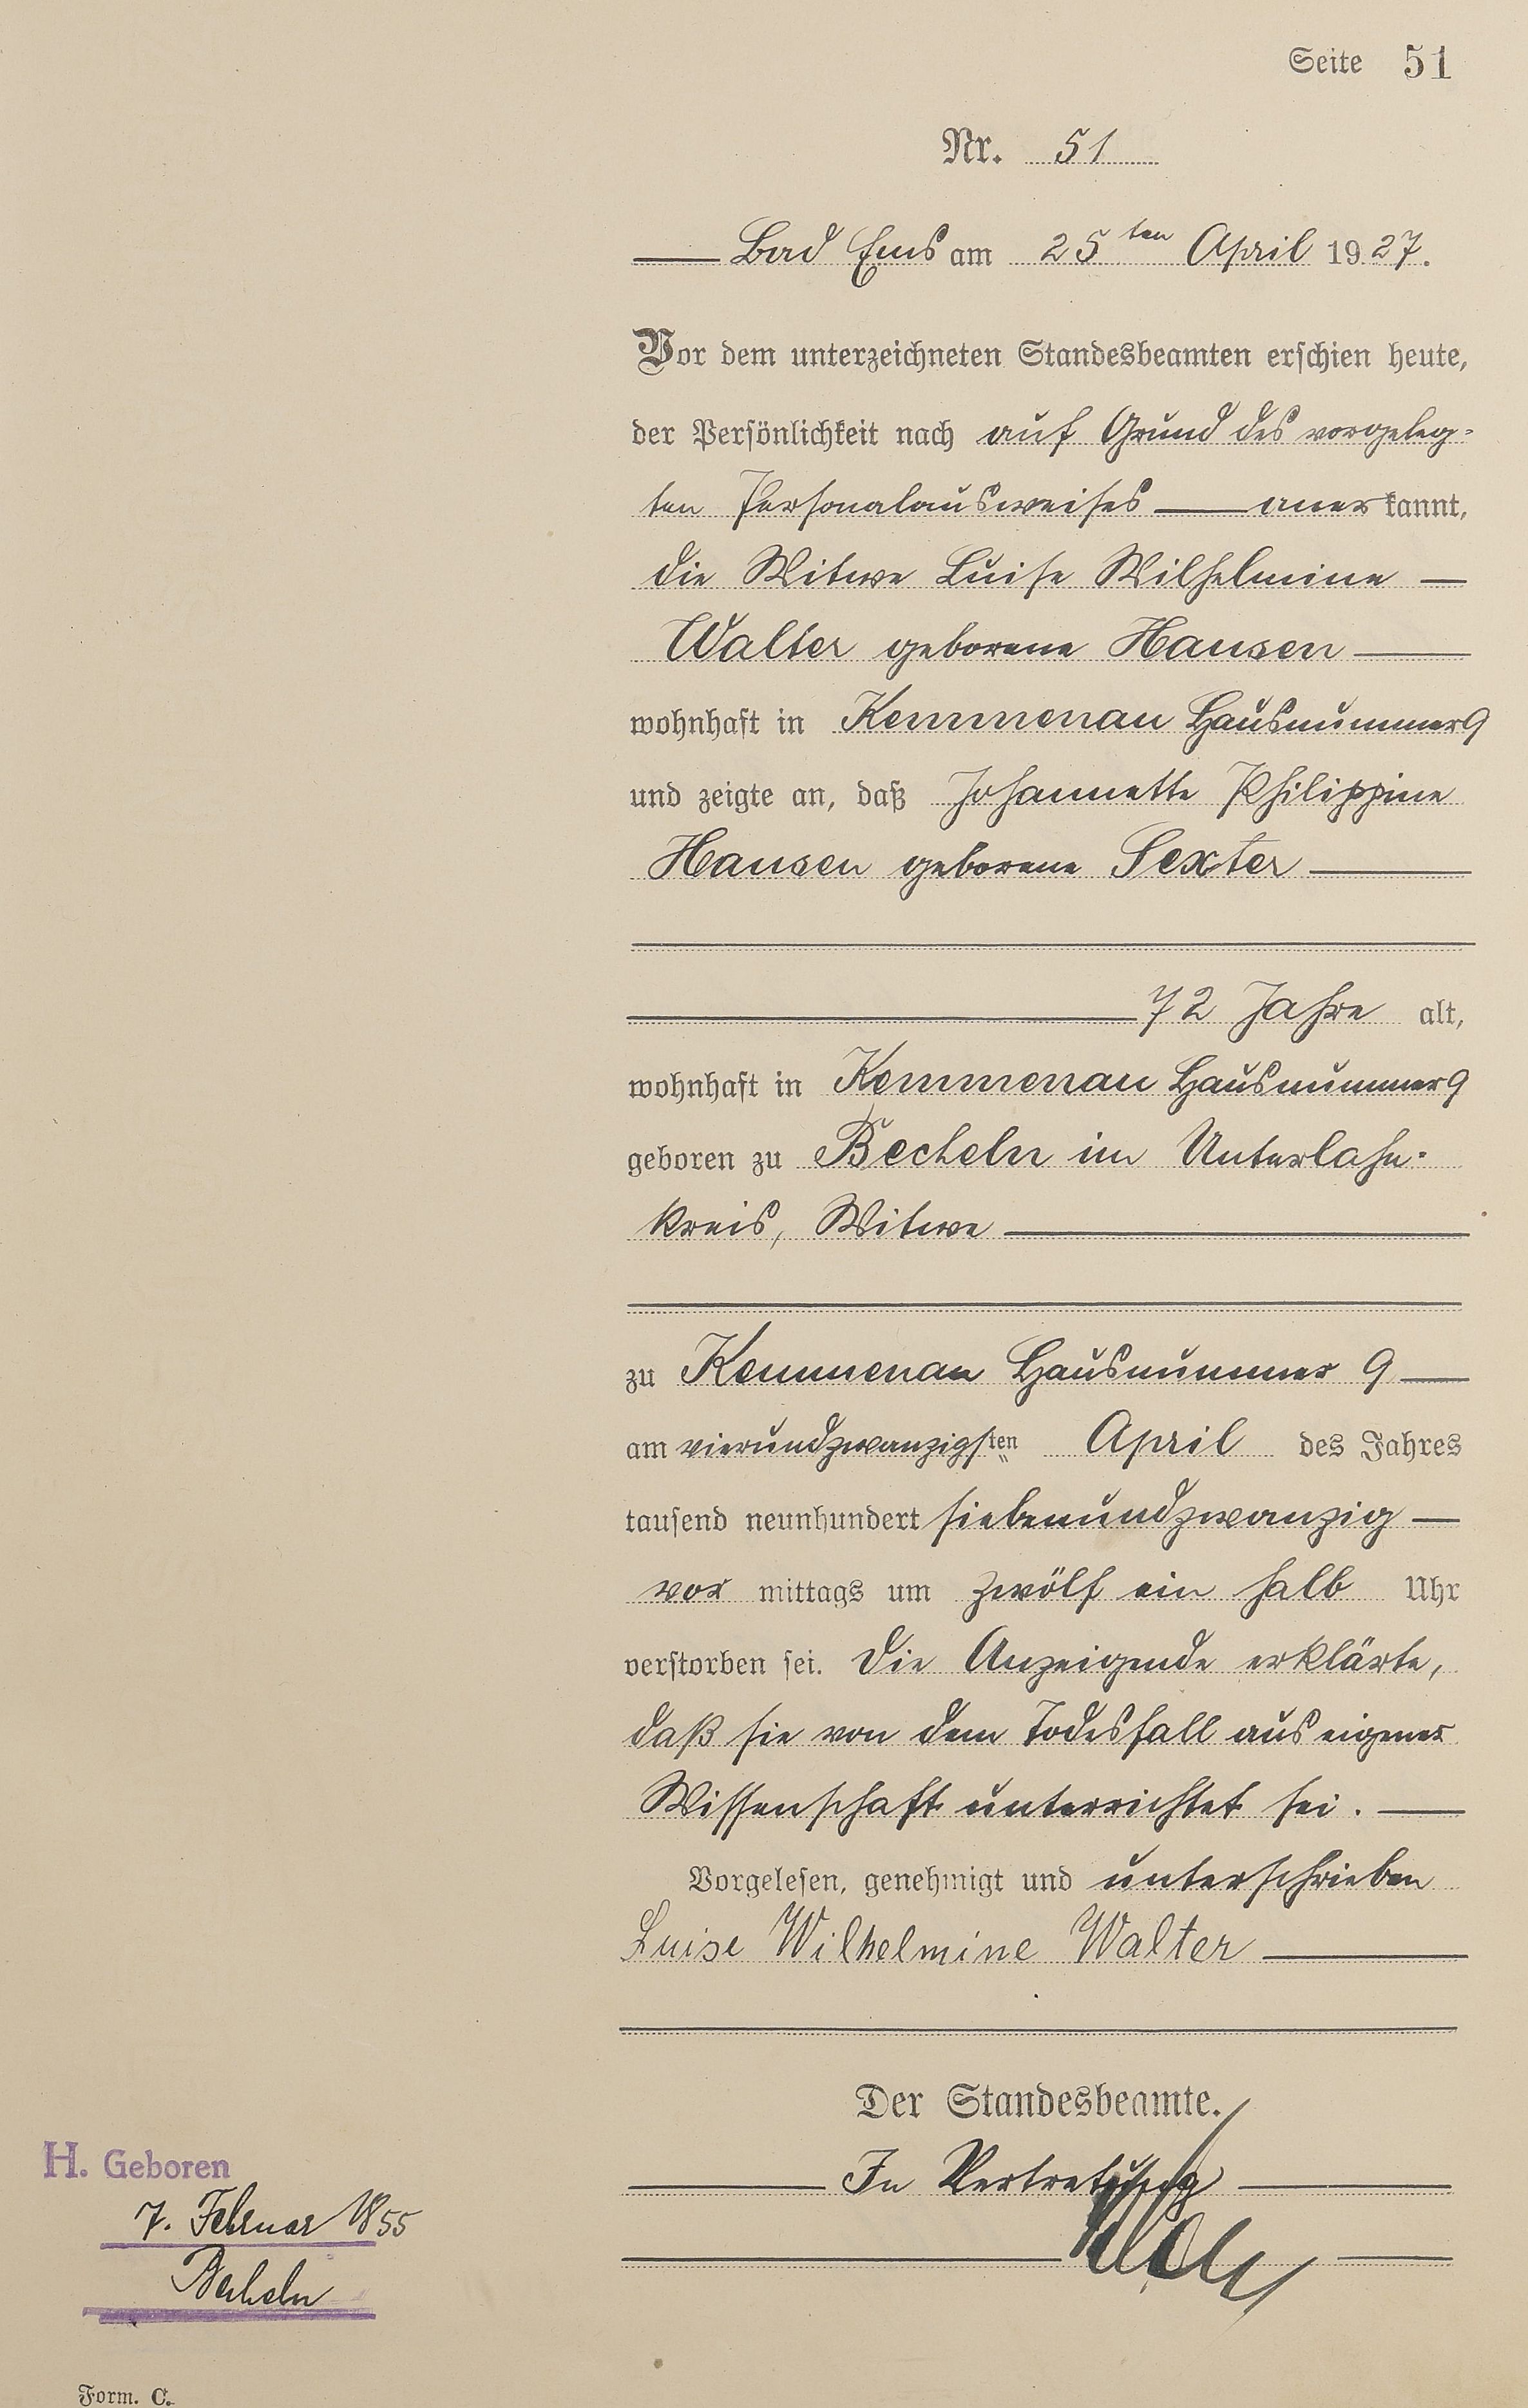 Seite 51
Nr. 51
Bad Ems am 25ten April 1927.
Vor dem unterzeichneten Standesbeamten erschien heute,
der Persönlichkeit nach auf Grund des vorgeleg-
ten Personalausweises — anerkannt,
die Witwe Luise Wilhelmine —
Walter geborene Hansen —
wohnhaft in Kemmenau Hausnummer 9
und zeigte an, daß Johannette Philippine
Hansen geborene Sexter —
72 Jahre alt,
wohnhaft in Kemmenau Hausnummer 9
geboren zu Becheln im Unterlahn-
kreis, Witwe —
zu Kemmenau Hausnummer 9 —
am vierundzwanzigsten April des Jahres
tausend neunhundert siebenundzwanzig —
vor mittags um zwölf ein halb Uhr
verstorben sei. Die Anzeigende erklärte,
daß sie von dem Todesfall aus eigener
Wissenschaft unterrichtet sei. —
Vorgelesen, genehmigt und unterschrieben
Luise Wilhelmine Walter —
Der Standesbeamte.
In Vertretung
H. Geboren
7. Februar 1855
Becheln
Form. C.